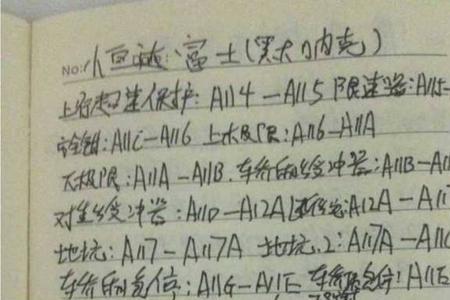 No: 小巨通:富士(黑大纳克)
上行超速保护: A114-A115 限速器:A115-
安全钳:A11C-A116 上极限:A116-A11A
下极限:A11A-A11B.车轿的缓冲器:A11B-A11
对重缓冲器:A11D-A12A A12A-A11
地坑:A117-A117A 地坑.2:A117A-A11C
车轿的急停:A11G-A11E A11E